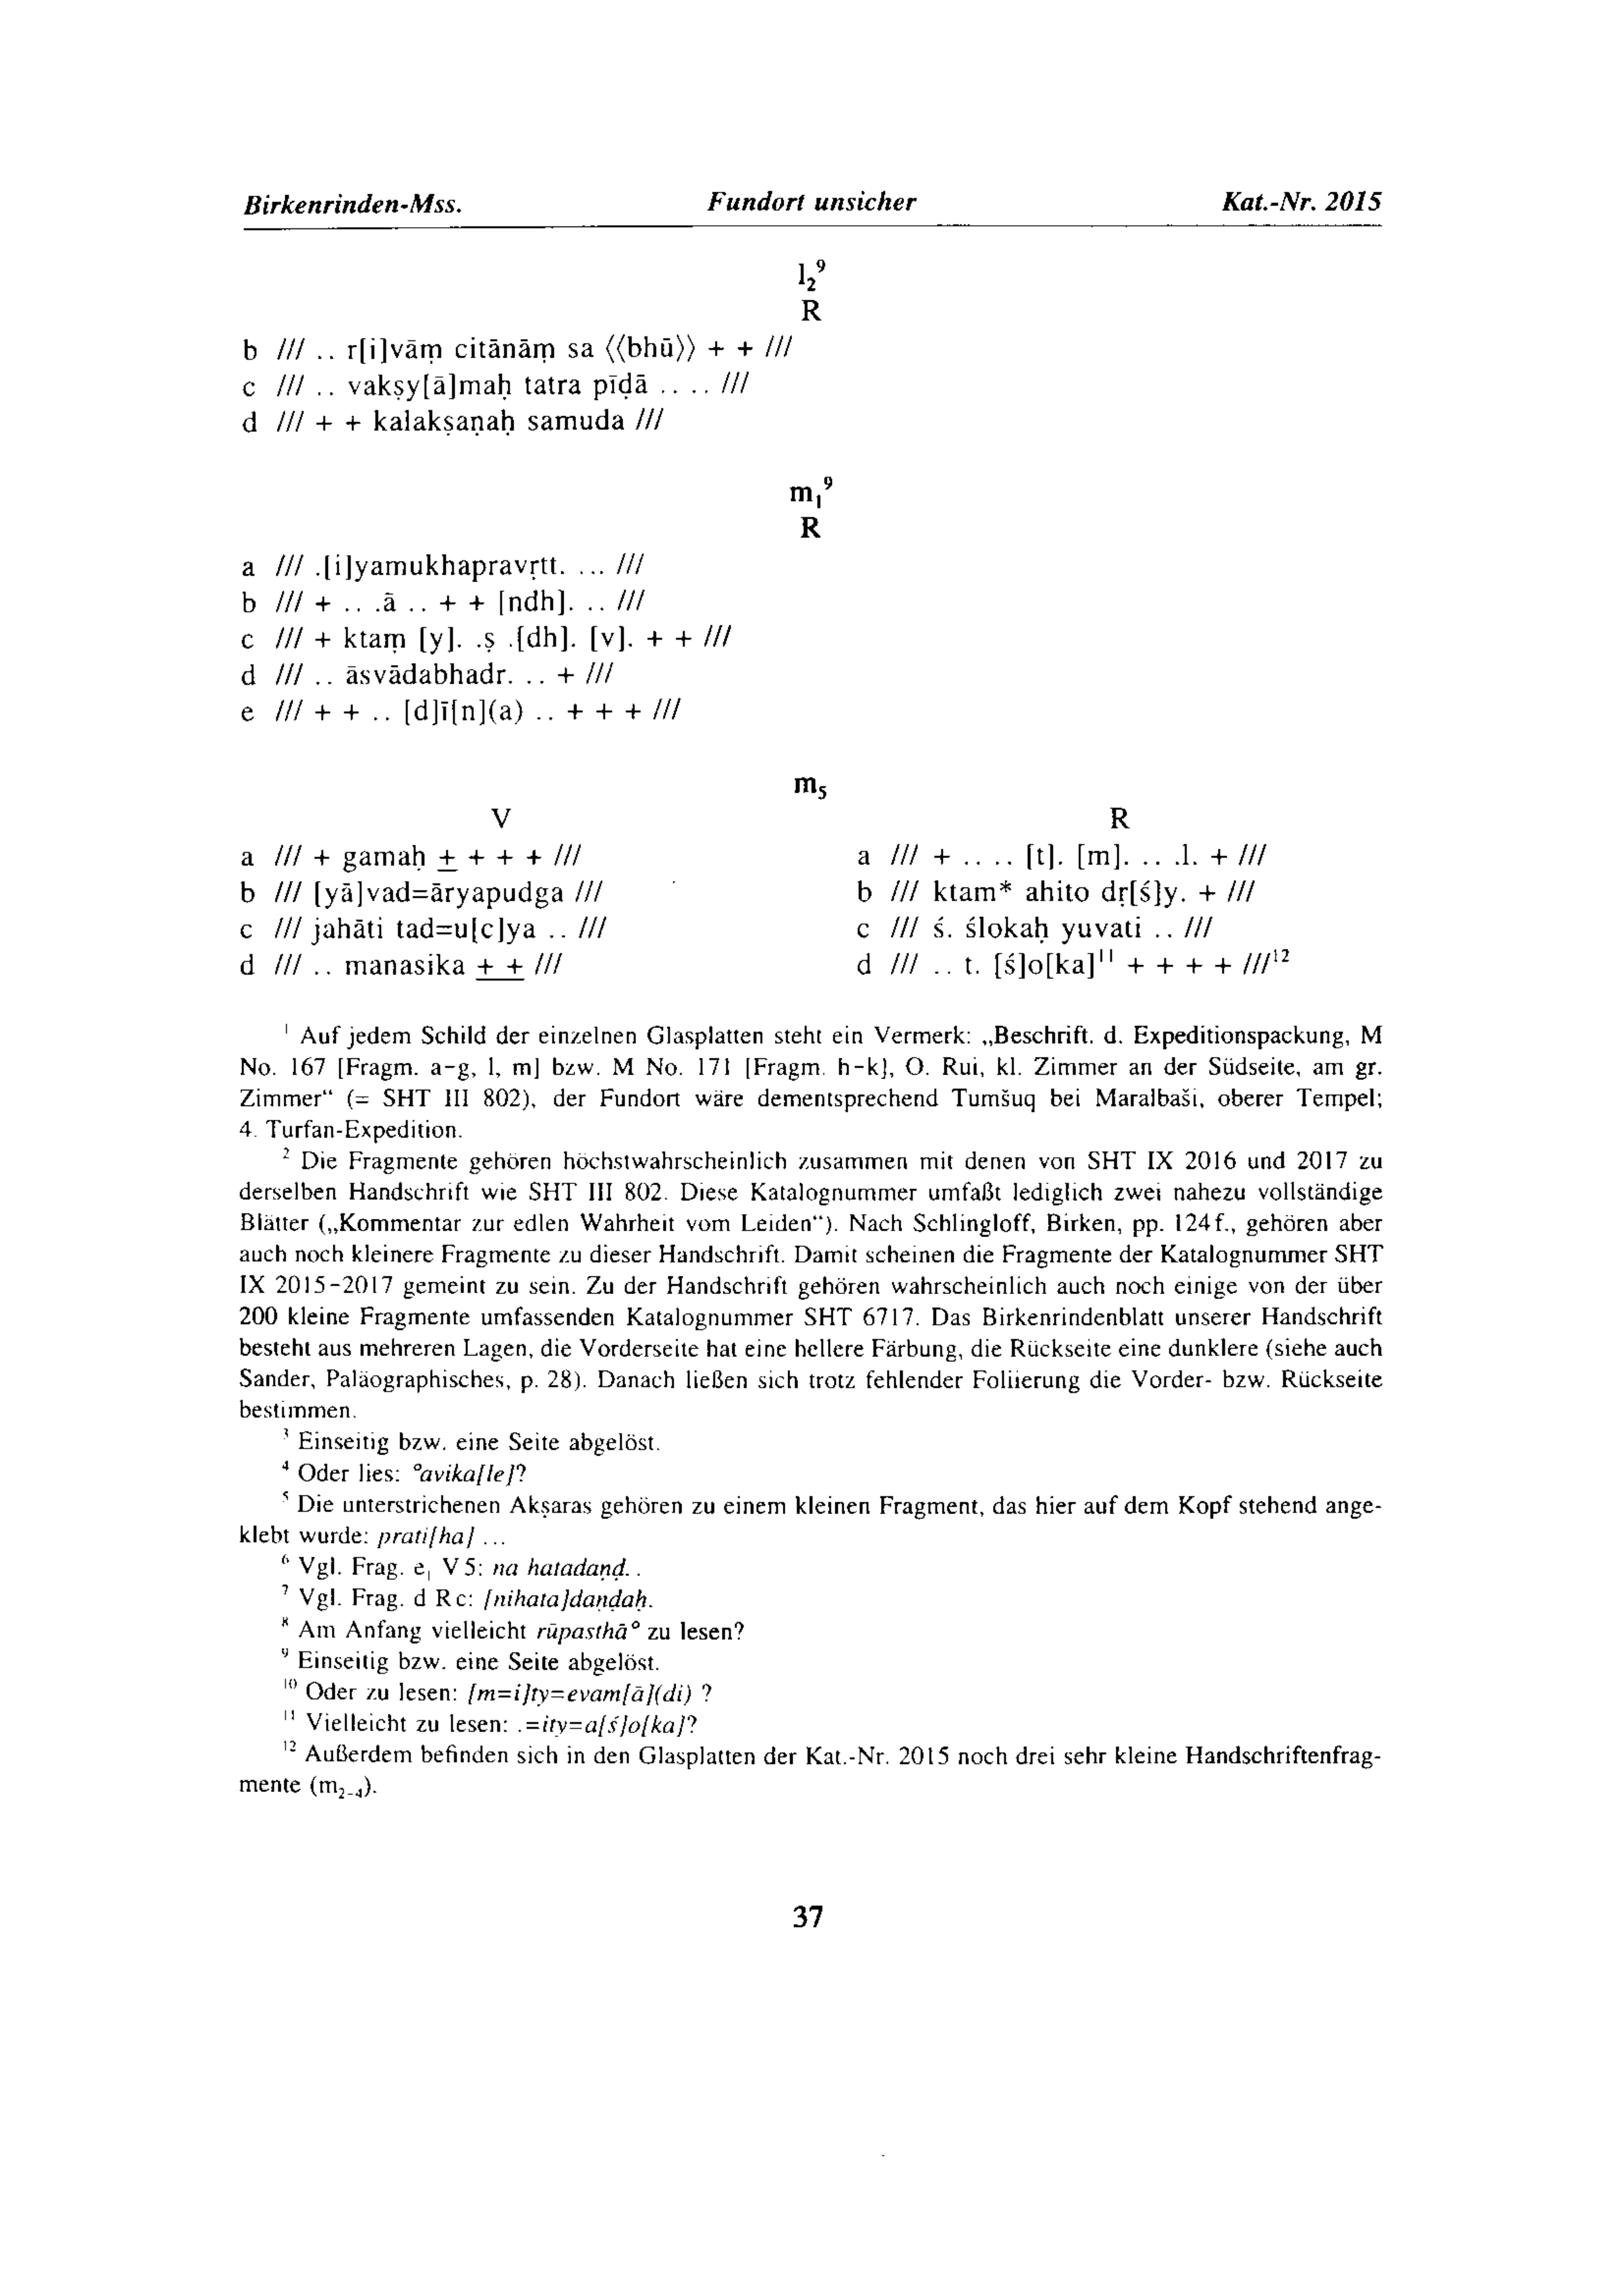 Birkenrinden-Mss. Fundort unsicher Kat.-Nr. 2015
l₂⁹
R
b /// .. r[i]vāṃ citānāṃ sa ⟨⟨bhū⟩⟩ + + ///
c /// .. vakṣy[ā]maḥ tatra pīḍā .. .. ///
d /// + + kalakṣaṇaḥ samuda ///
m₁⁹
R
a /// .[i]yamukhapravṛtt. ... ///
b /// + .. .ā .. + + [ndh]. .. ///
c /// + ktaṃ [y]. .ṣ .[dh]. [v]. + + ///
d /// .. āsvādabhadr. .. + ///
e /// + + .. [d]ī[n](a) .. + + + ///
m₅
V
a /// + gamaḥ + + + + ///
b /// [yā]vad=āryapudga ///
c /// jahāti tad=u[c]ya .. ///
d /// .. manasika + + ///
R
a /// + .. .. [t]. [m]. .. .l. + ///
b /// ktam* ahito dṛ[ś]y. + ///
c /// ś. ślokaḥ yuvati .. ///
d /// .. t. [ś]o[ka]¹¹ + + + + ///¹²
¹ Auf jedem Schild der einzelnen Glasplatten steht ein Vermerk: „Beschrift. d. Expeditionspackung, M
No. 167 [Fragm. a-g, l, m] bzw. M No. 171 [Fragm. h-k], O. Rui, kl. Zimmer an der Südseite, am gr.
Zimmer“ (= SHT III 802), der Fundort wäre dementsprechend Tumšuq bei Maralbaši, oberer Tempel;
4. Turfan-Expedition.
² Die Fragmente gehören höchstwahrscheinlich zusammen mit denen von SHT IX 2016 und 2017 zu
derselben Handschrift wie SHT III 802. Diese Katalognummer umfaßt lediglich zwei nahezu vollständige
Blätter („Kommentar zur edlen Wahrheit vom Leiden“). Nach Schlingloff, Birken, pp. 124f., gehören aber
auch noch kleinere Fragmente zu dieser Handschrift. Damit scheinen die Fragmente der Katalognummer SHT
IX 2015-2017 gemeint zu sein. Zu der Handschrift gehören wahrscheinlich auch noch einige von der über
200 kleine Fragmente umfassenden Katalognummer SHT 6717. Das Birkenrindenblatt unserer Handschrift
besteht aus mehreren Lagen, die Vorderseite hat eine hellere Färbung, die Rückseite eine dunklere (siehe auch
Sander, Paläographisches, p. 28). Danach ließen sich trotz fehlender Foliierung die Vorder- bzw. Rückseite
bestimmen.
³ Einseitig bzw. eine Seite abgelöst.
⁴ Oder lies: °avika[le]?
⁵ Die unterstrichenen Akṣaras gehören zu einem kleinen Fragment, das hier auf dem Kopf stehend ange-
klebt wurde: prati[ha] ...
⁶ Vgl. Frag. e₁ V5: na hatadaṇḍ. .
⁷ Vgl. Frag. d Rc: [nihata]daṇḍaḥ.
⁸ Am Anfang vielleicht rūpasthā° zu lesen?
⁹ Einseitig bzw. eine Seite abgelöst.
¹⁰ Oder zu lesen: [m=i]ty=evam[ā](di) ?
¹¹ Vielleicht zu lesen: .=ity=a[ś]o[ka]?
¹² Außerdem befinden sich in den Glasplatten der Kat.-Nr. 2015 noch drei sehr kleine Handschriftenfrag-
mente (m₂₋₄).
37